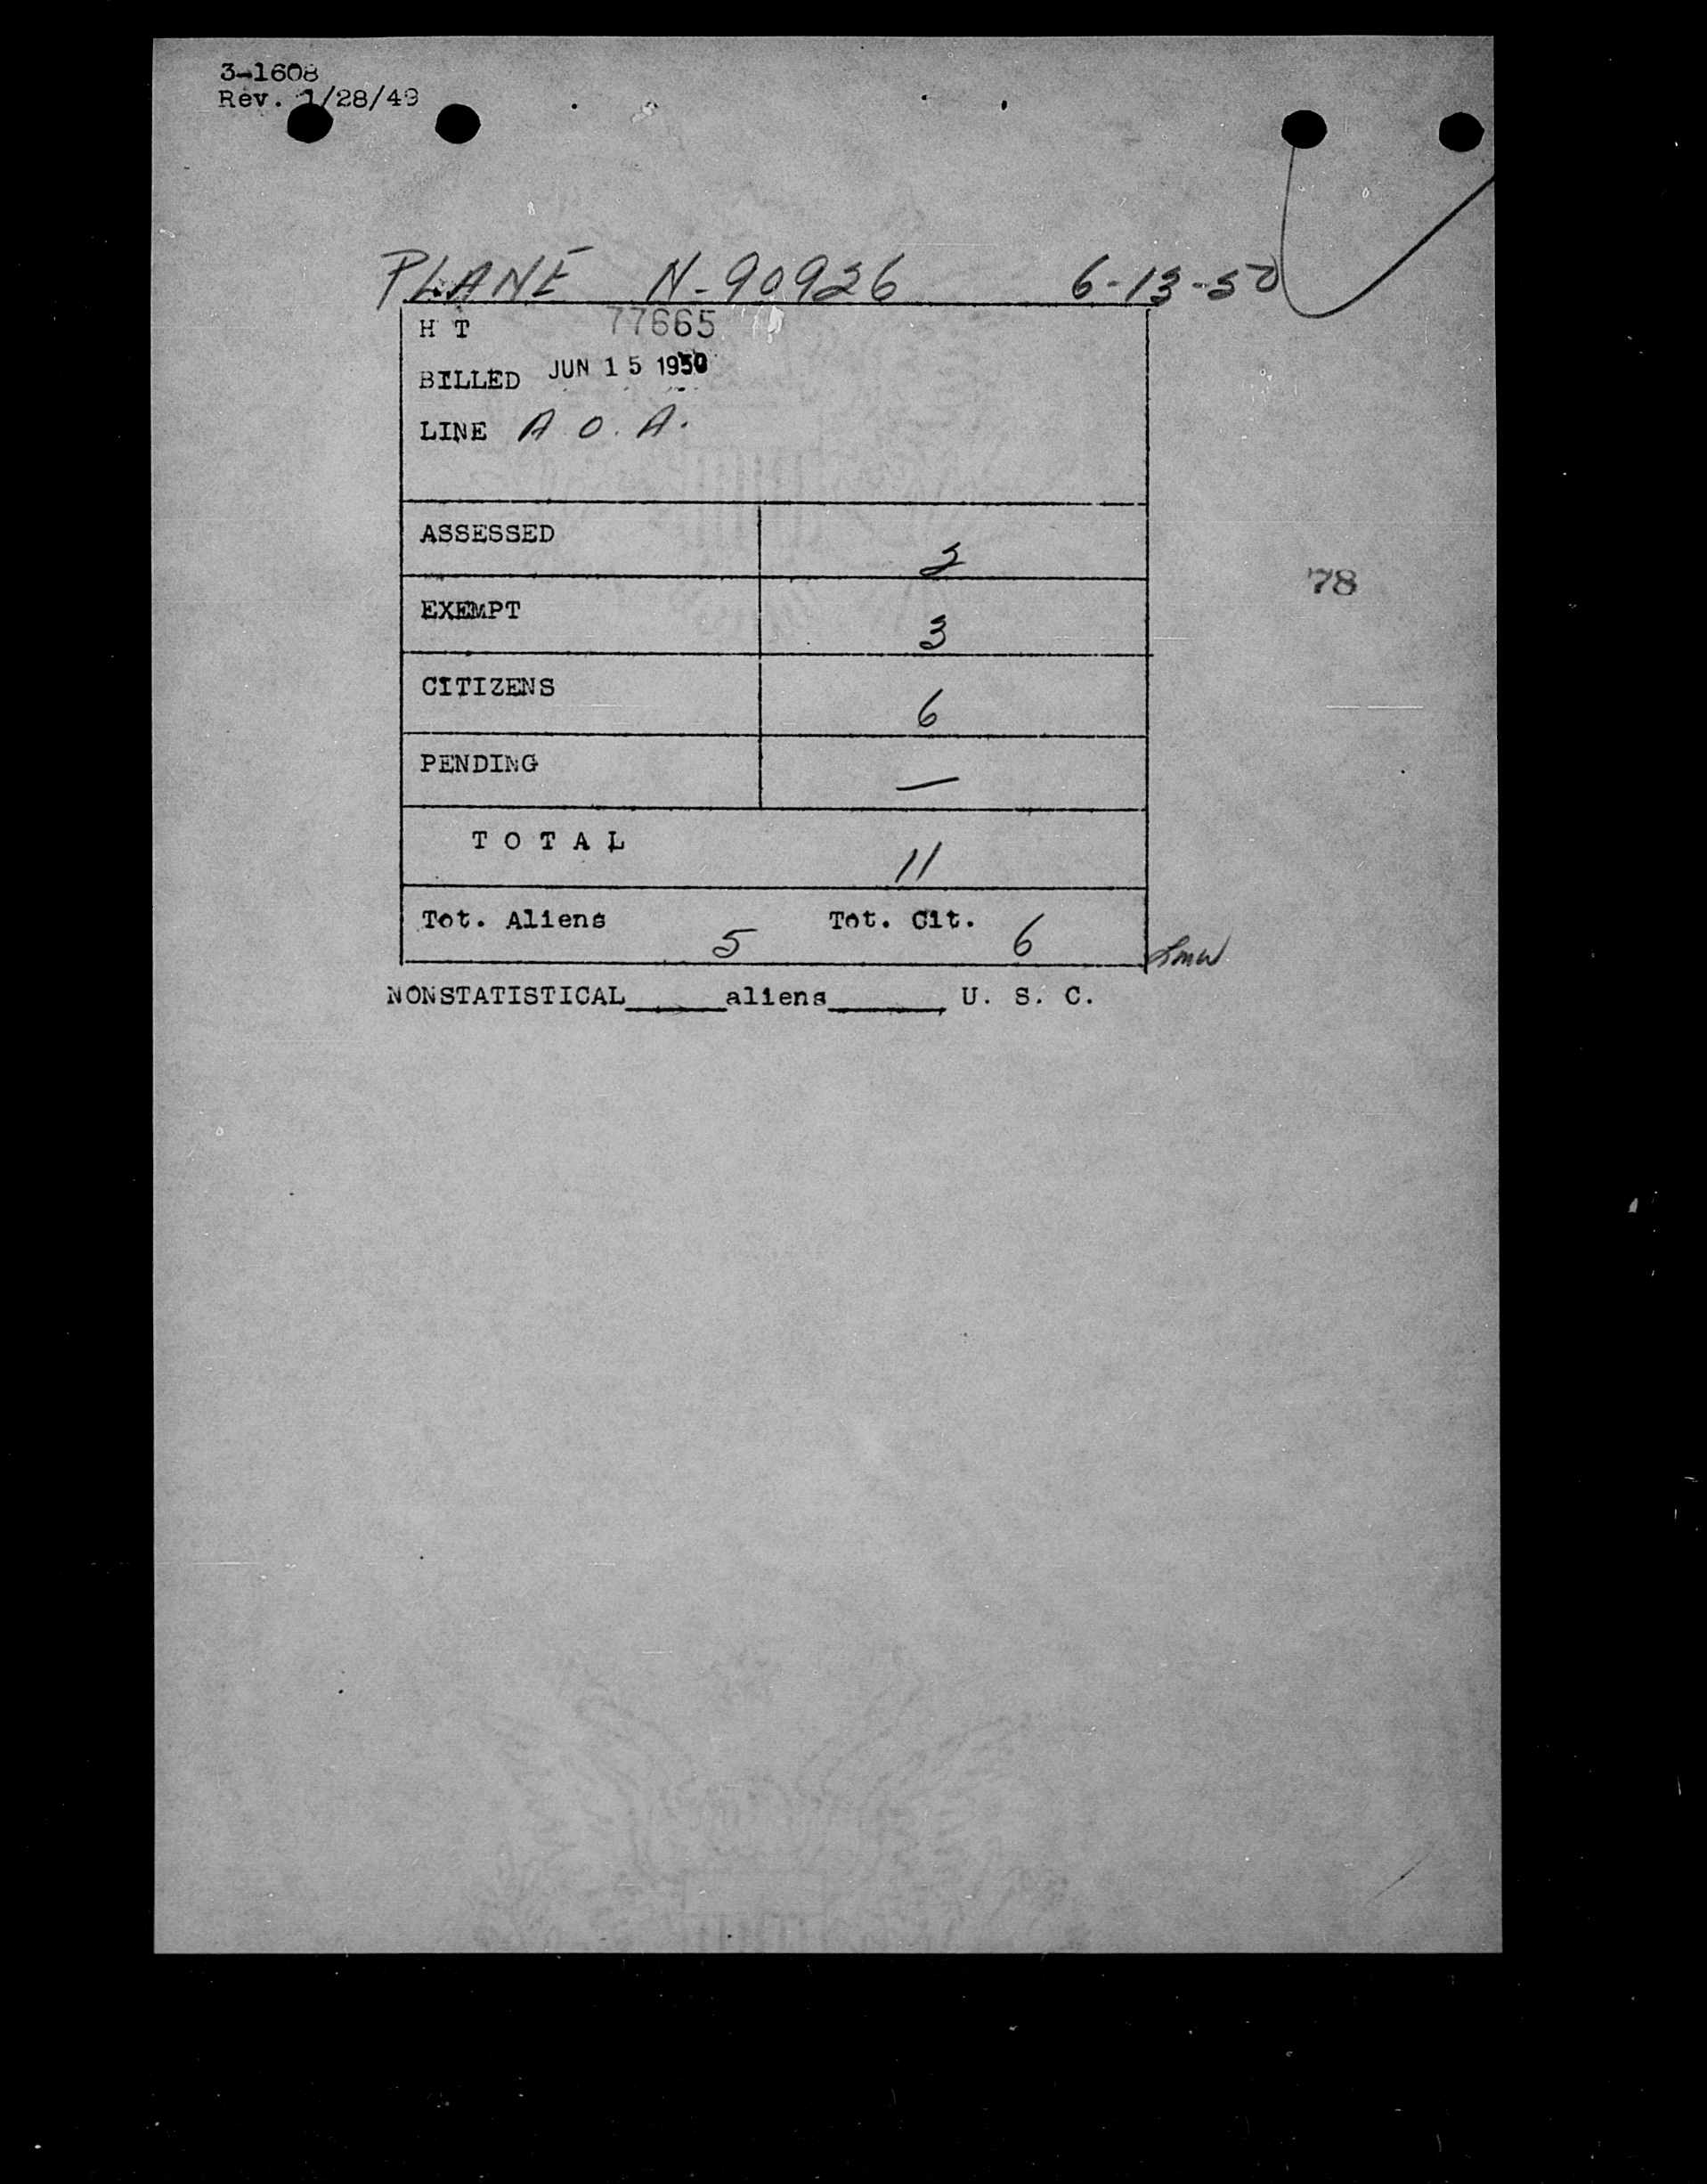 3-1608
Rev. 1/28/49
PLANE N-90926 6-13-50
H T 77665
BILLED JUN 15 1950
LINE A. O. A.
ASSESSED 2
EXEMPT 3
CITIZENS 6
PENDING —
78
T O T A L 11
Tot. Aliens 5 Tot. Cit. 6
NONSTATISTICAL_____aliens______ U. S. C.